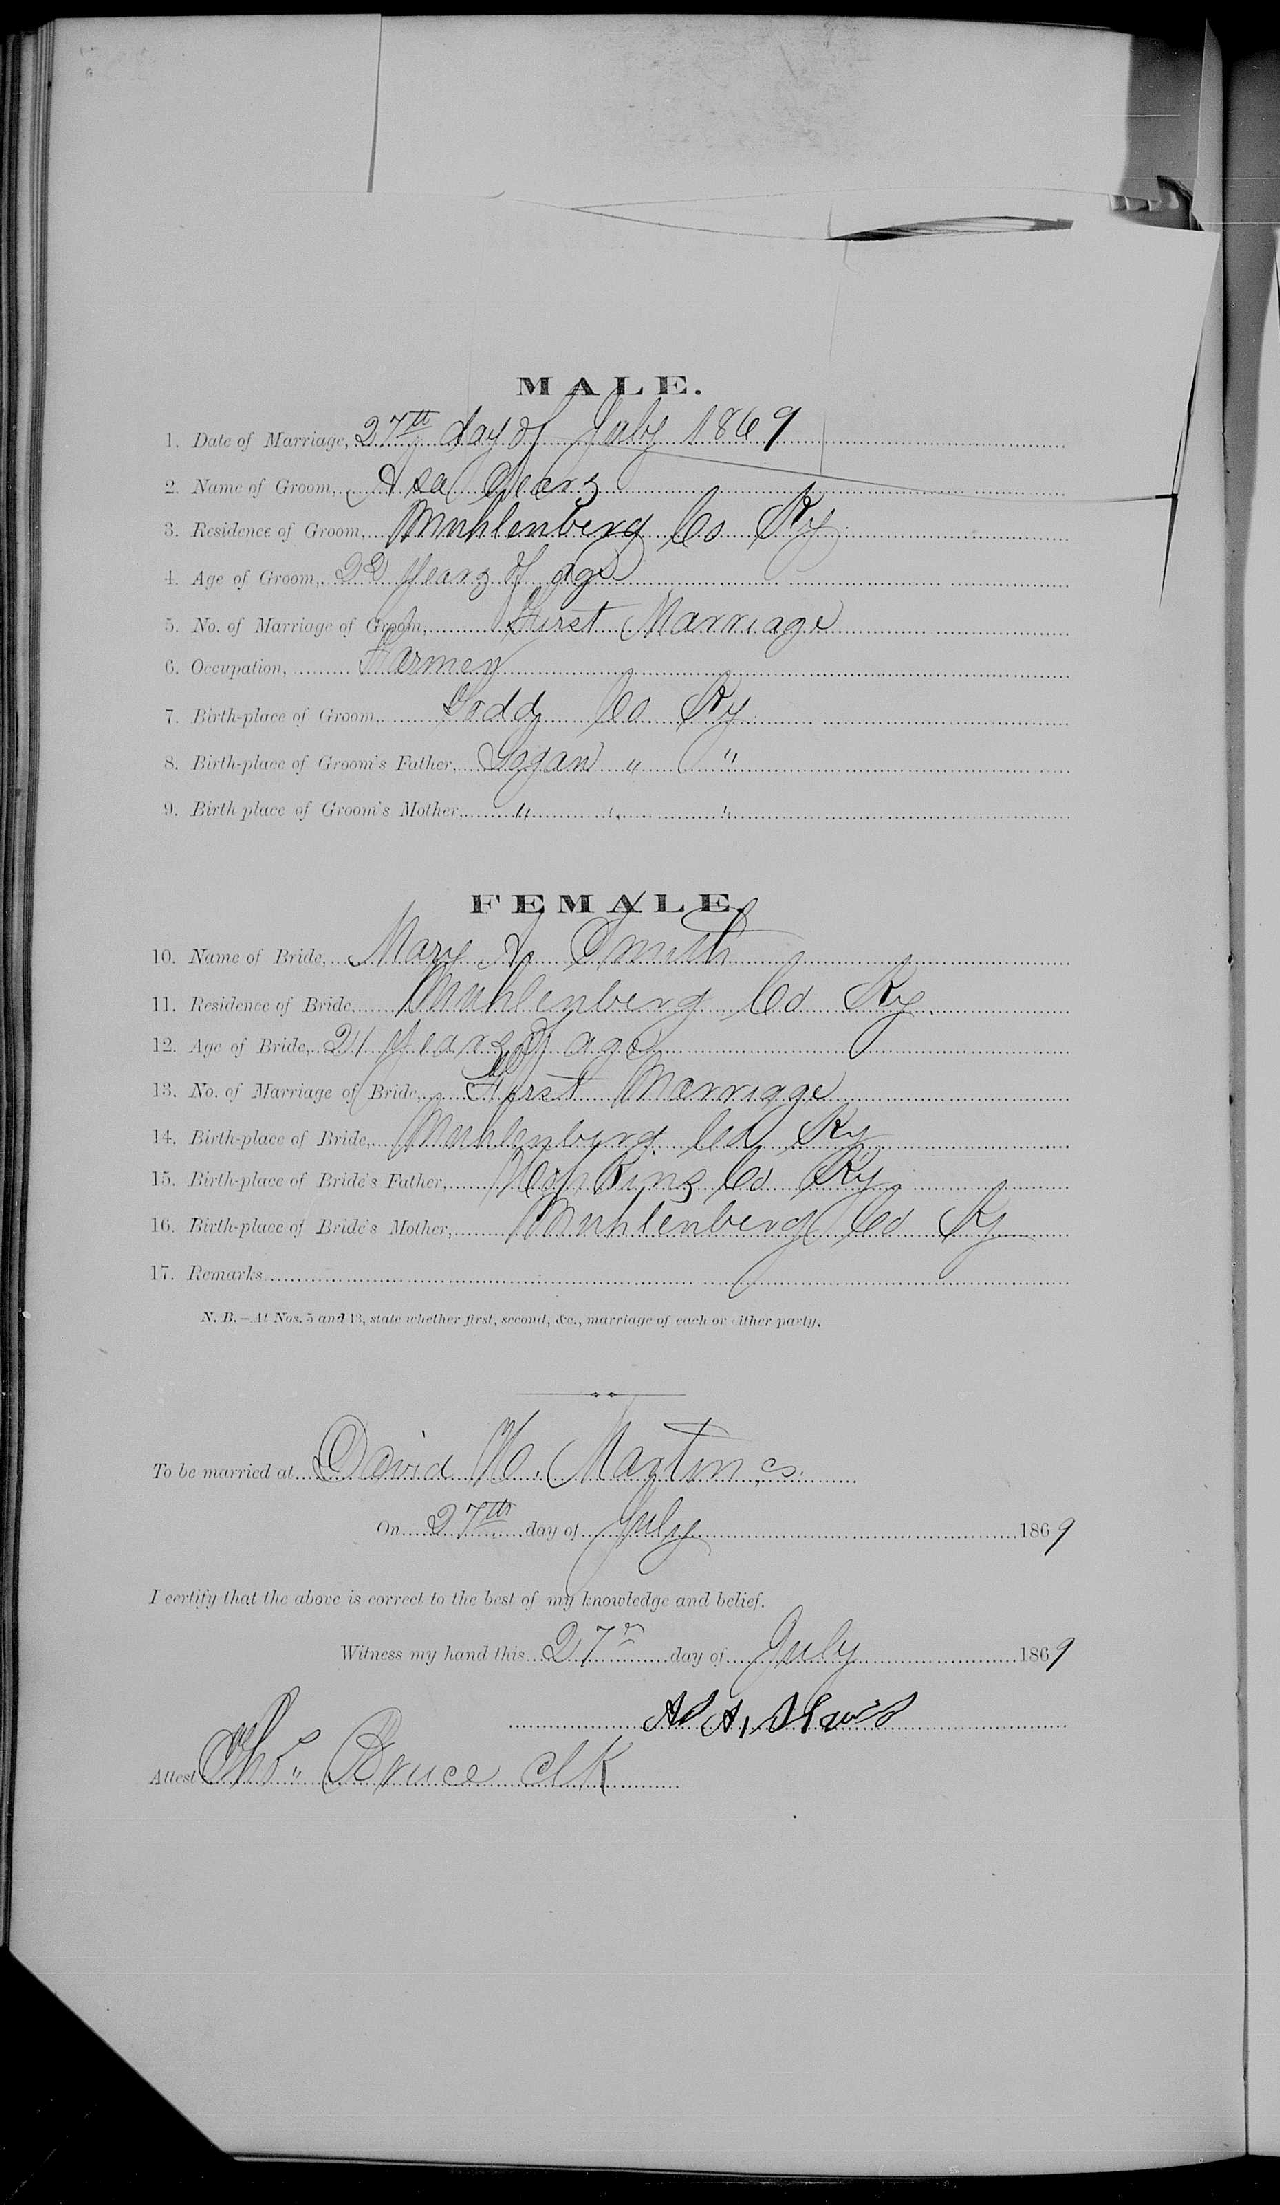 MALE.
1. Date of Marriage, 27th day of July 1869
2. Name of Groom, Asa
3. Residence of Groom, Muhlenberg Co Ky
4. Age of Groom, 22 years of age
5. No. of Marriage of Groom, First Marriage
6. Occupation, Farmer
7. Birth-place of Groom, Todd Co Ky
8. Birth-place of Groom's Father, Logan " "
9. Birth place of Groom's Mother, " " "
FEMALE.
10. Name of Bride, Mary Smith
11. Residence of Bride, Muhlenberg Co Ky
12. Age of Bride, 21 years of age
13. No. of Marriage of Bride, First Marriage
14. Birth-place of Bride, Muhlenberg Co Ky
15. Birth-place of Bride's Father, Hopkins Co Ky
16. Birth-place of Bride's Mother, Muhlenberg Co Ky
17. Remarks
N. B.—At Nos. 5 and 13, state whether first, second, &c., marriage of each or either party.
To be married at David H. Martin,s.
On 27th day of July 1869
I certify that the above is correct to the best of my knowledge and belief.
Witness my hand this 27th day of July 1869
Attest Thos. Bruce clk